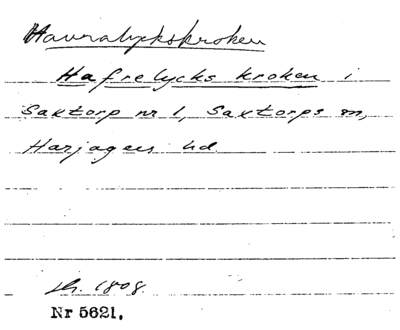 Havralyckskroken
Hafrelycks kroken i
Saxtorp nr 1, Saxtorps sn,
Harjagers hd.
sk. 1808.
Nr 5621.